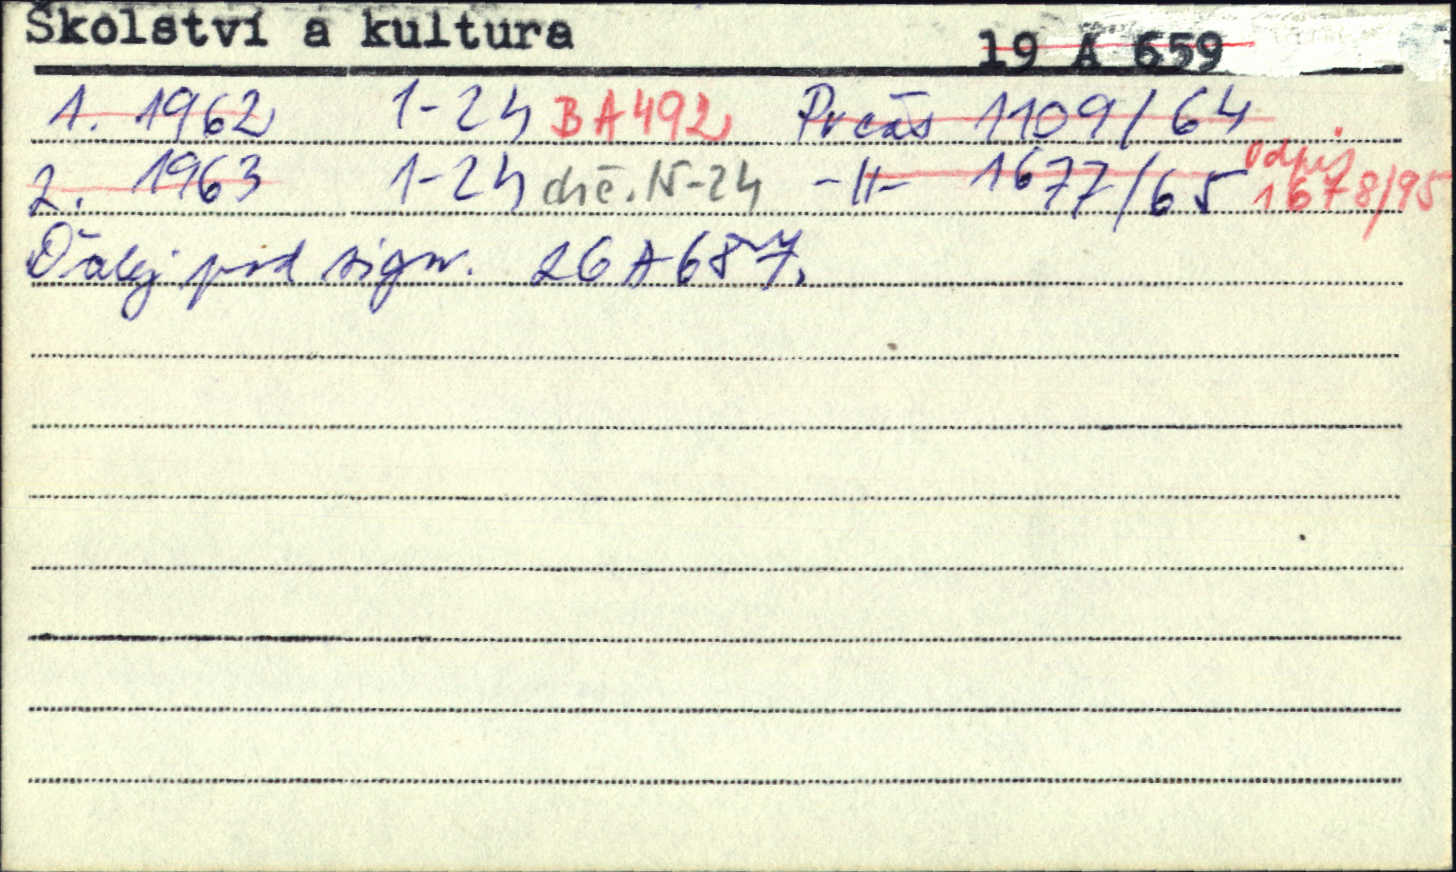 Školství a kultura 19 A 659
1. 1962 1-24 BA492 Pr čás 1109/64
2. 1963 1-24 -II- 1677/65 odpis 1678/95
Ďalej pod sign. 26 A 687.